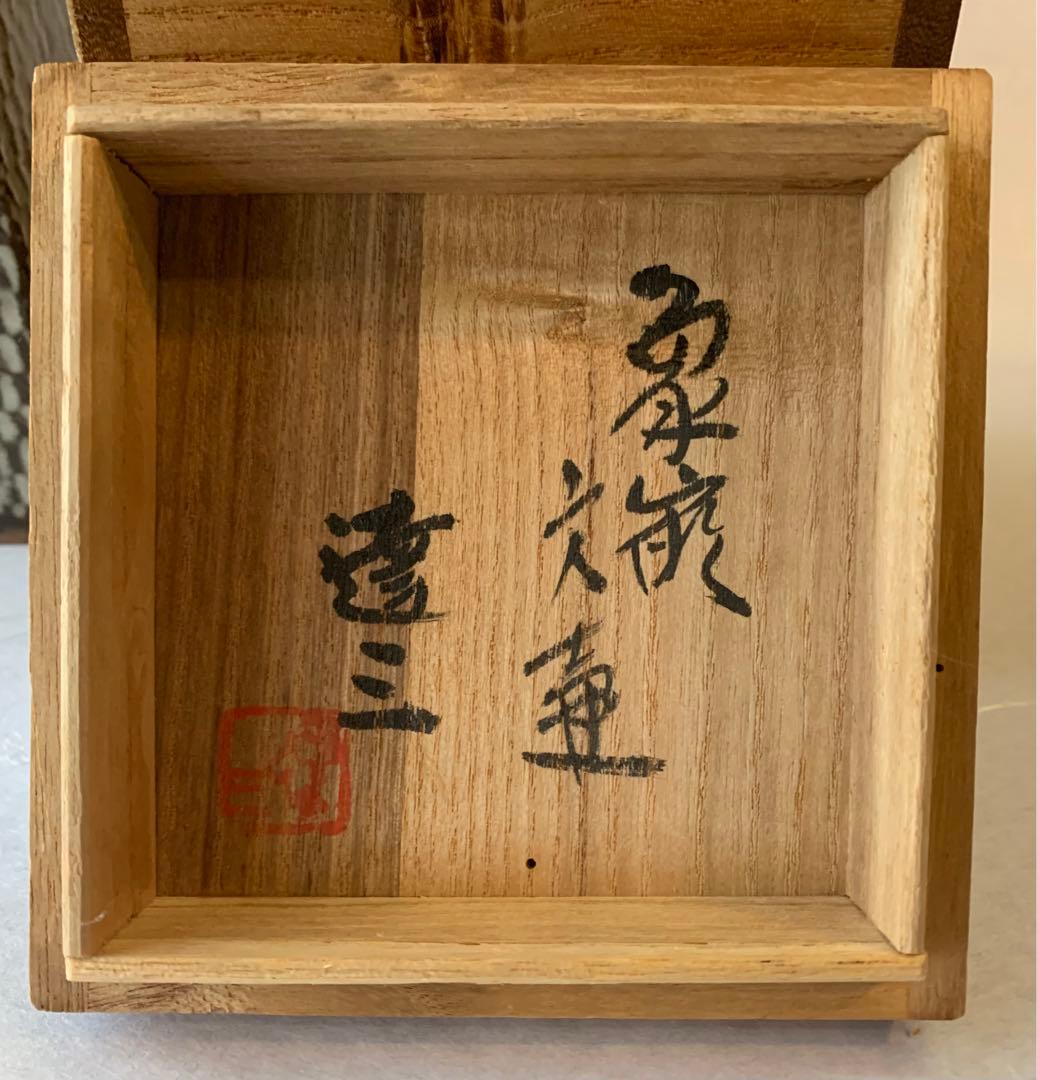 象嵌
文壺
達三